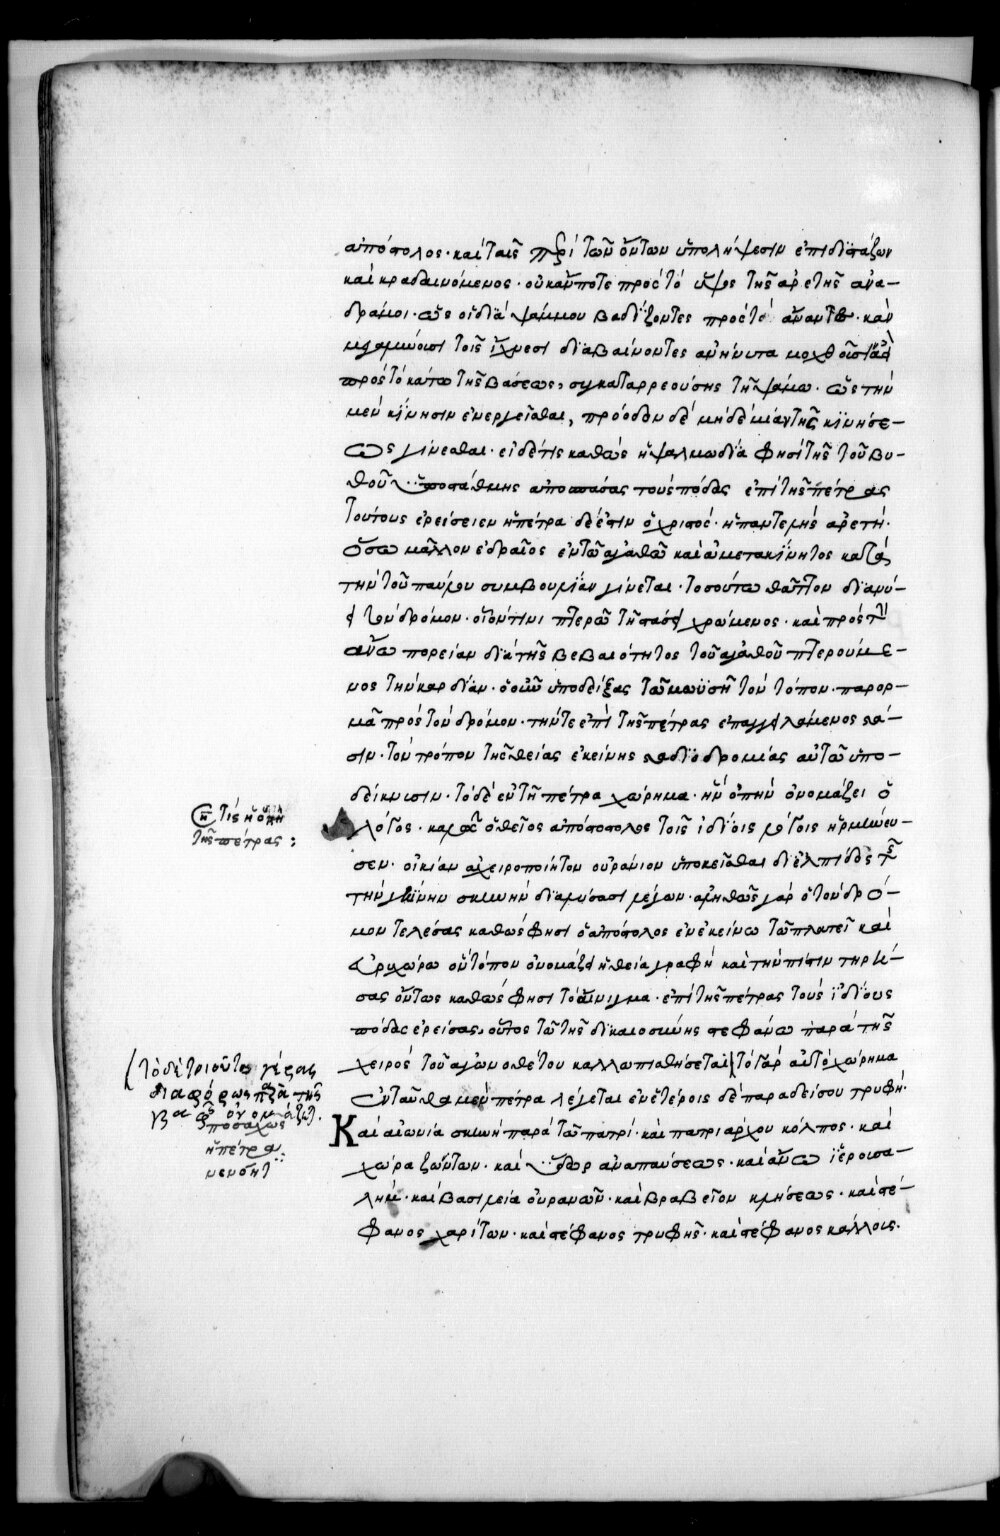 ἀπόστολος· καὶ ταῖς περὶ τῶν ὄντων ὑπολήψεσιν ἐπιδιστάζων
καὶ κραδαινόμενος· οὐκ ἄν ποτε πρὸς τὸ ὕψος τῆς ἀρετῆς ἀνα-
δράμοι· ὡς οἱ διὰ ψάμμου βαδίζοντες πρὸς τὸ ἄναντες· κἂν
τοῖς ἴχνεσι διαβαίνοντες ἀνήνυτα
πρὸς τὸ κάτω τῆς βάσεως, συγκαταρρεούσης τῆ ψάμω· ὡς τὴν
μὲν κίνησιν ἐνεργεῖσθαι, πρόοδον δὲ μηδεμίαν τῆς κινήσε-
ως γίνεσθαι· εἰ δέ τις καθὼς ἡ ψαλμωδία φησὶ τῆς τοῦ βυ-
θοῦ ὑποστάθμης ἀποσπάσας τοὺς πόδας ἐπὶ τῆς πέτρας
τούτους ἐρείσειεν ἡ πέτρα δέ ἐστιν ὁ χριστός· ἡ παντελὴς ἀρετή·
ὅσω μᾶλλον ἑδραῖος ἐν τῶ ἀγαθῶ καὶ ἀμετακίνητος κατὰ
τὴν τοῦ παύλου συμβουλίαν γίνεται· τοσούτω θᾶττον διανύ-
ει τὸν δρόμον· οἷόν τινι πτερῶ τῆ στάσει χρώμενος· καὶ πρὸς τὴν
ἄνω πορείαν διὰ τῆς βεβαιότητος τοῦ ἀγαθοῦ πτερούμε-
νος τὴν καρδίαν· ὁ οὖν ὑποδείξας τῶ μωϋσῆ τὸν τόπον· παρορ-
μᾶ πρὸς τὸν δρόμον· τήν τε ἐπὶ τῆς πέτρας ἐπαγγειλάμενος στά-
σιν· τὸν τρόπον τῆς θείας ἐκείνης σταδιοδρομίας αὐτῶ ὑπο-
δείκνυσιν· τὸ δὲ ἐν τῆ πέτρα χώρημα· ἣν ὀπὴν ὀνομάζει ὁ
λόγος· καλῶς ὁ θεῖος ἀπόστολος τοῖς ἰδίοις λόγοις ἡρμήνευ-
σεν· οἰκίαν ἀχειροποίητον οὐράνιον ὑποκεῖσθαι δι' ἐλπίδος τοῖς
τὴν γηΐνην σκηνὴν διαλύσασι λέγων· ἀληθῶς γὰρ ὁ τὸν δρό-
μον τελέσας καθώς φησι ὁ ἀπόστολος ἐν ἐκείνω τῶ πλατεῖ καὶ
εὐρυχώρω ὃν τόπον ὀνομάζει ἡ θεία γραφὴ καὶ τὴν πίστιν τηρή-
σας ὄντως καθώς φησι τὸ αἴνιγμα· ἐπὶ τῆς πέτρας τοὺς ἰδίους
πόδας ἐρείσας, οὗτος τῶ τῆς δικαιοσύνης στεφάνω παρὰ τῆς
χειρὸς τοῦ ἀγωνοθέτου καλλωπισθήσεται τὸ γὰρ αὐτὸ χώρημα
ἐνταῦθα μὲν πέτρα λέγεται ἐν ἑτέροις δὲ παραδείσου τρυφή·
Καὶ αἰωνία σκηνὴ παρὰ τῶ πατρί· καὶ πατριάρχου κόλπος· καὶ
χώρα ζώντων· καὶ ὕδωρ ἀναπαύσεως· καὶ ἄνω ἱερουσα-
λήμ· καὶ βασιλεία οὐρανῶν· καὶ βραβεῖον κλήσεως· καὶ στέ-
φανος χαρίτων· καὶ στέφανος τρυφῆς· καὶ στέφανος κάλλους·
τίς ἡ ὀπὴ
τῆς πέτρας:
τὸ δὲ τοιοῦτο γέρας
διαφόρως παρὰ τῆς
γραφῆς ὀνομάζεται.
ποσαχῶς
ἡ πέτρα